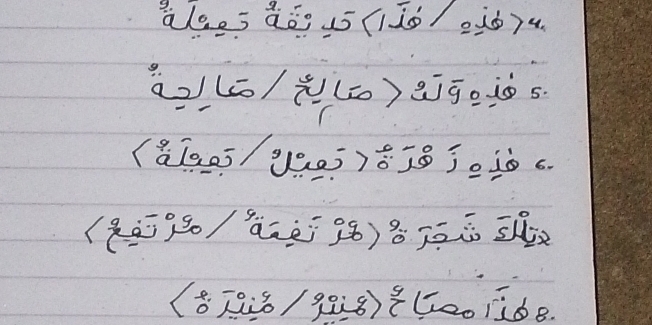 4. (هٰذِهِ / هٰذَا) حَدِيْقَةٌ جَمِيْلَةٌ
5. هٰذِهِ وَلَدٌ (صَالِحٌ / صَالِحَةٌ)
6. هٰذِهِ زَهْرَةٌ (جَمِيْلٌ / جَمِيْلَةٌ)
تِلْكَ شَجَرَةٌ (مُرْتَفِعَةٌ / مُرْتَفِعٌ)
8. هٰذَا مصبَاحٌ (مُنِيْرٌ / مُنِيْرَةٌ)